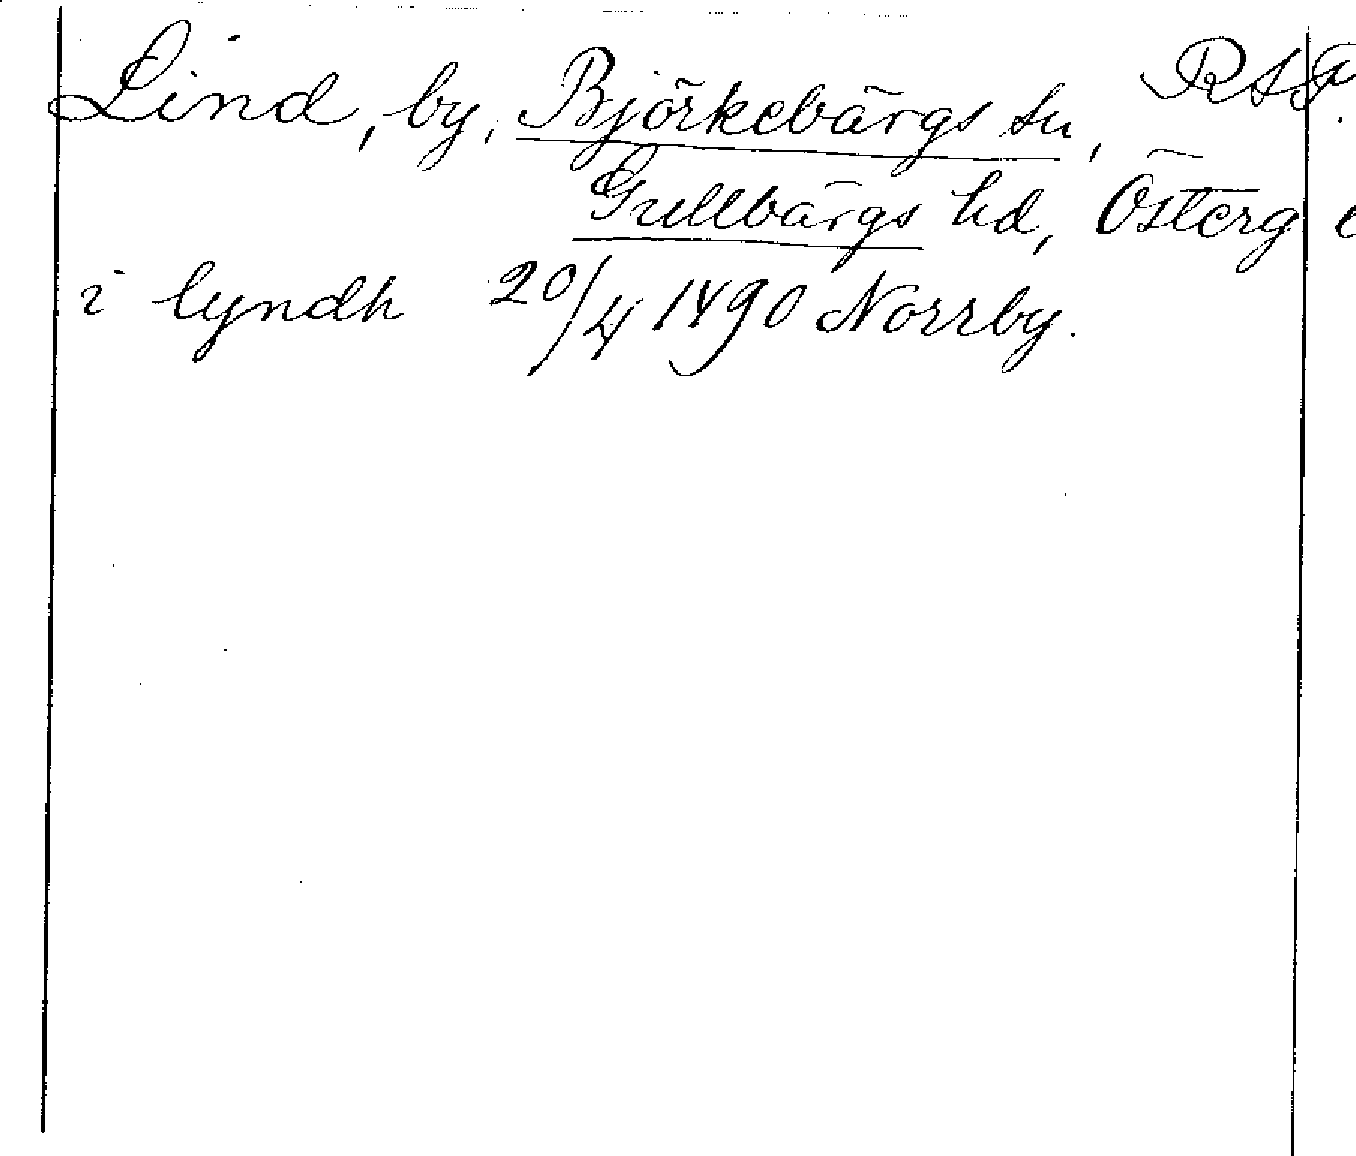 Lind, by, Björkebärgs su,
Gullbärgs hd, Österg
i lyndh 20/4 1490 Norrby.